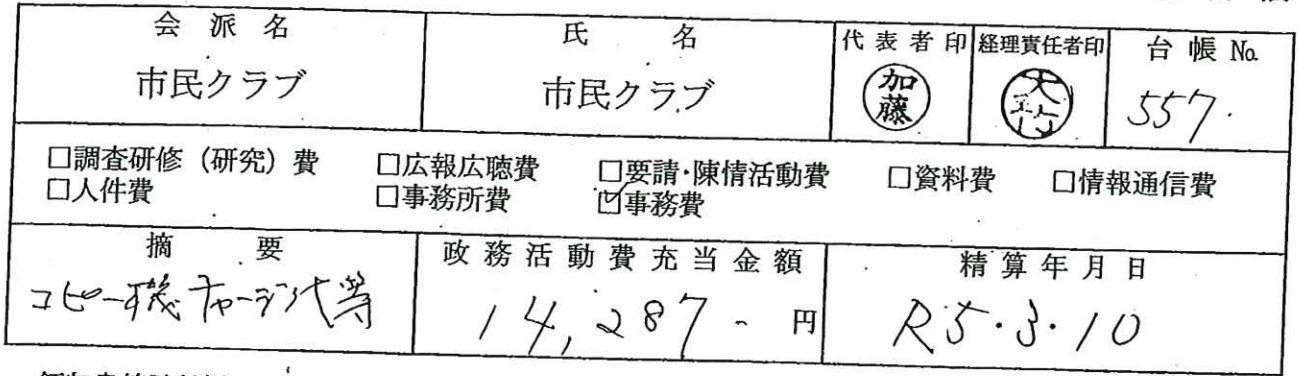 会派名 氏名 代表者印 経理責任者印 台帳№
市民クラブ 市民クラブ 加藤 557.
□調査研修(研究)費 □広報広聴費 □要請・陳情活動費 □資料費 □情報通信費
□人件費 □事務所費 ☑事務費
摘要 政務活動費充当金額 精算年月日
コピー機チャージ代等 14,287- 円 R5・3・10